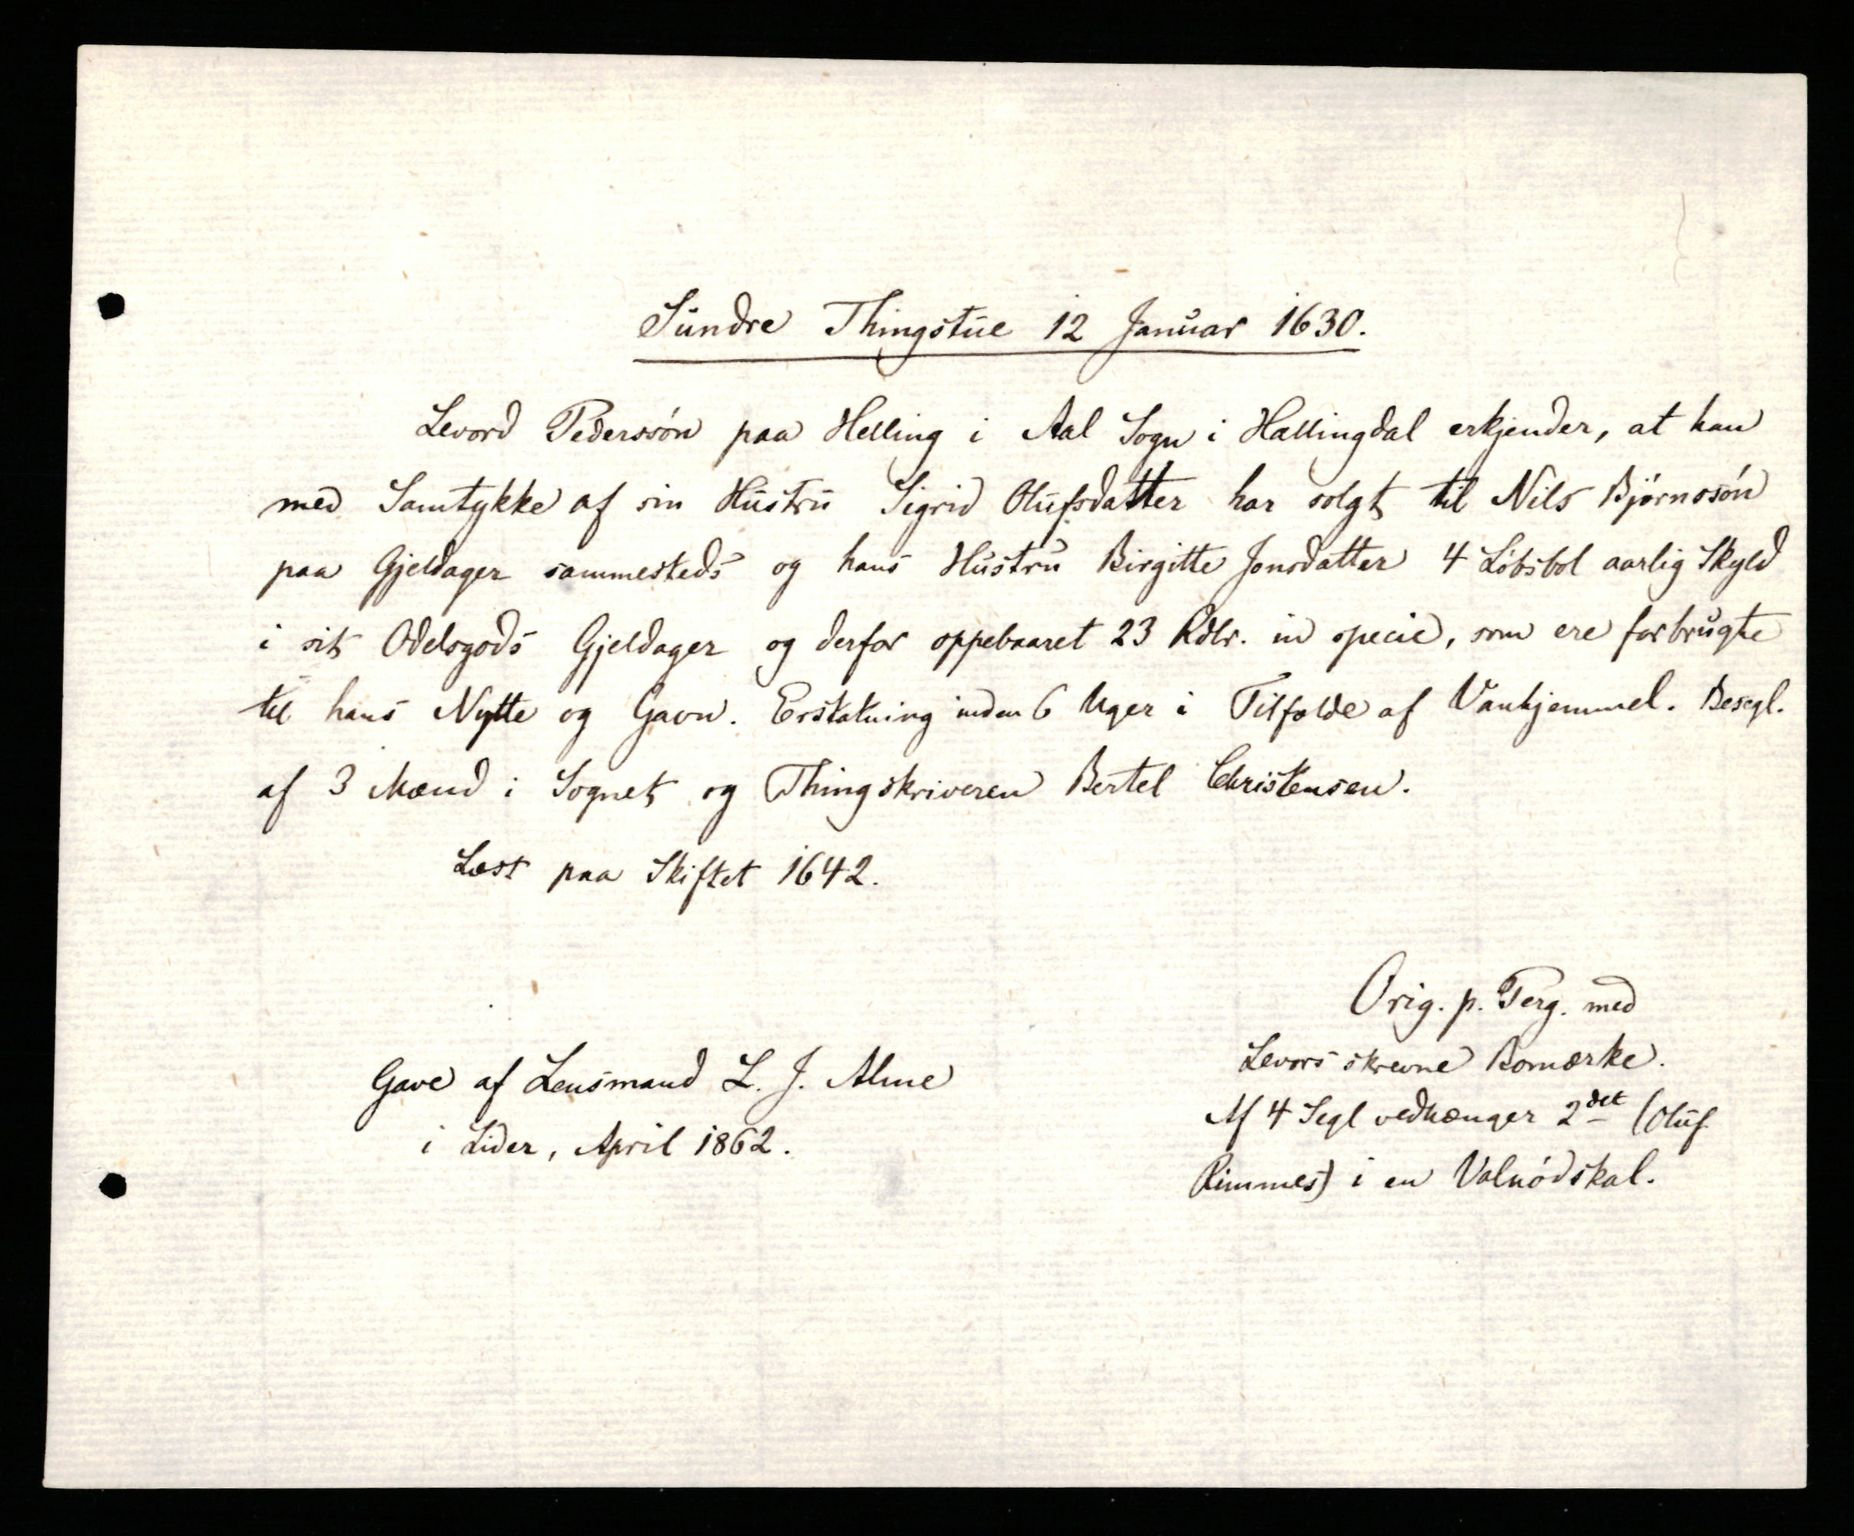 Sundre Thingstue 12 Januar 1630.
Levord Pederssön paa Helling i Aal Sogn i Hallingdal erkjender, at han
med Samtykke af sin Hustru Sigrid Olufsdatter har solgt til Nils Bjørnssön
paa Gjeldager sammesteds og hans Hustru Birgitte Jonsdatter 4 Löbsbol aarlig Skyld
i sit Odelsgods Gjeldager og derfor oppebaaret 23 Rdlr. in specie, som ere forbrugte
til hans Nytte og Gavn. Erstatning inden 6 Uger i Tilfælde af Vanhjemmel. Besegl.
af 3 Mænd i Sognet og Thingskriveren Bertel Christensen.
Læst paa Skiftet 1642.
Orig. p. Perg. med
Levors skrevne Bomærke.
Af 4 Segl vedhænger 2det (Oluf
Rimmes) i en Valnödskal.
Gave af Lensmand L. J. Alme
i Lider, April 1862.